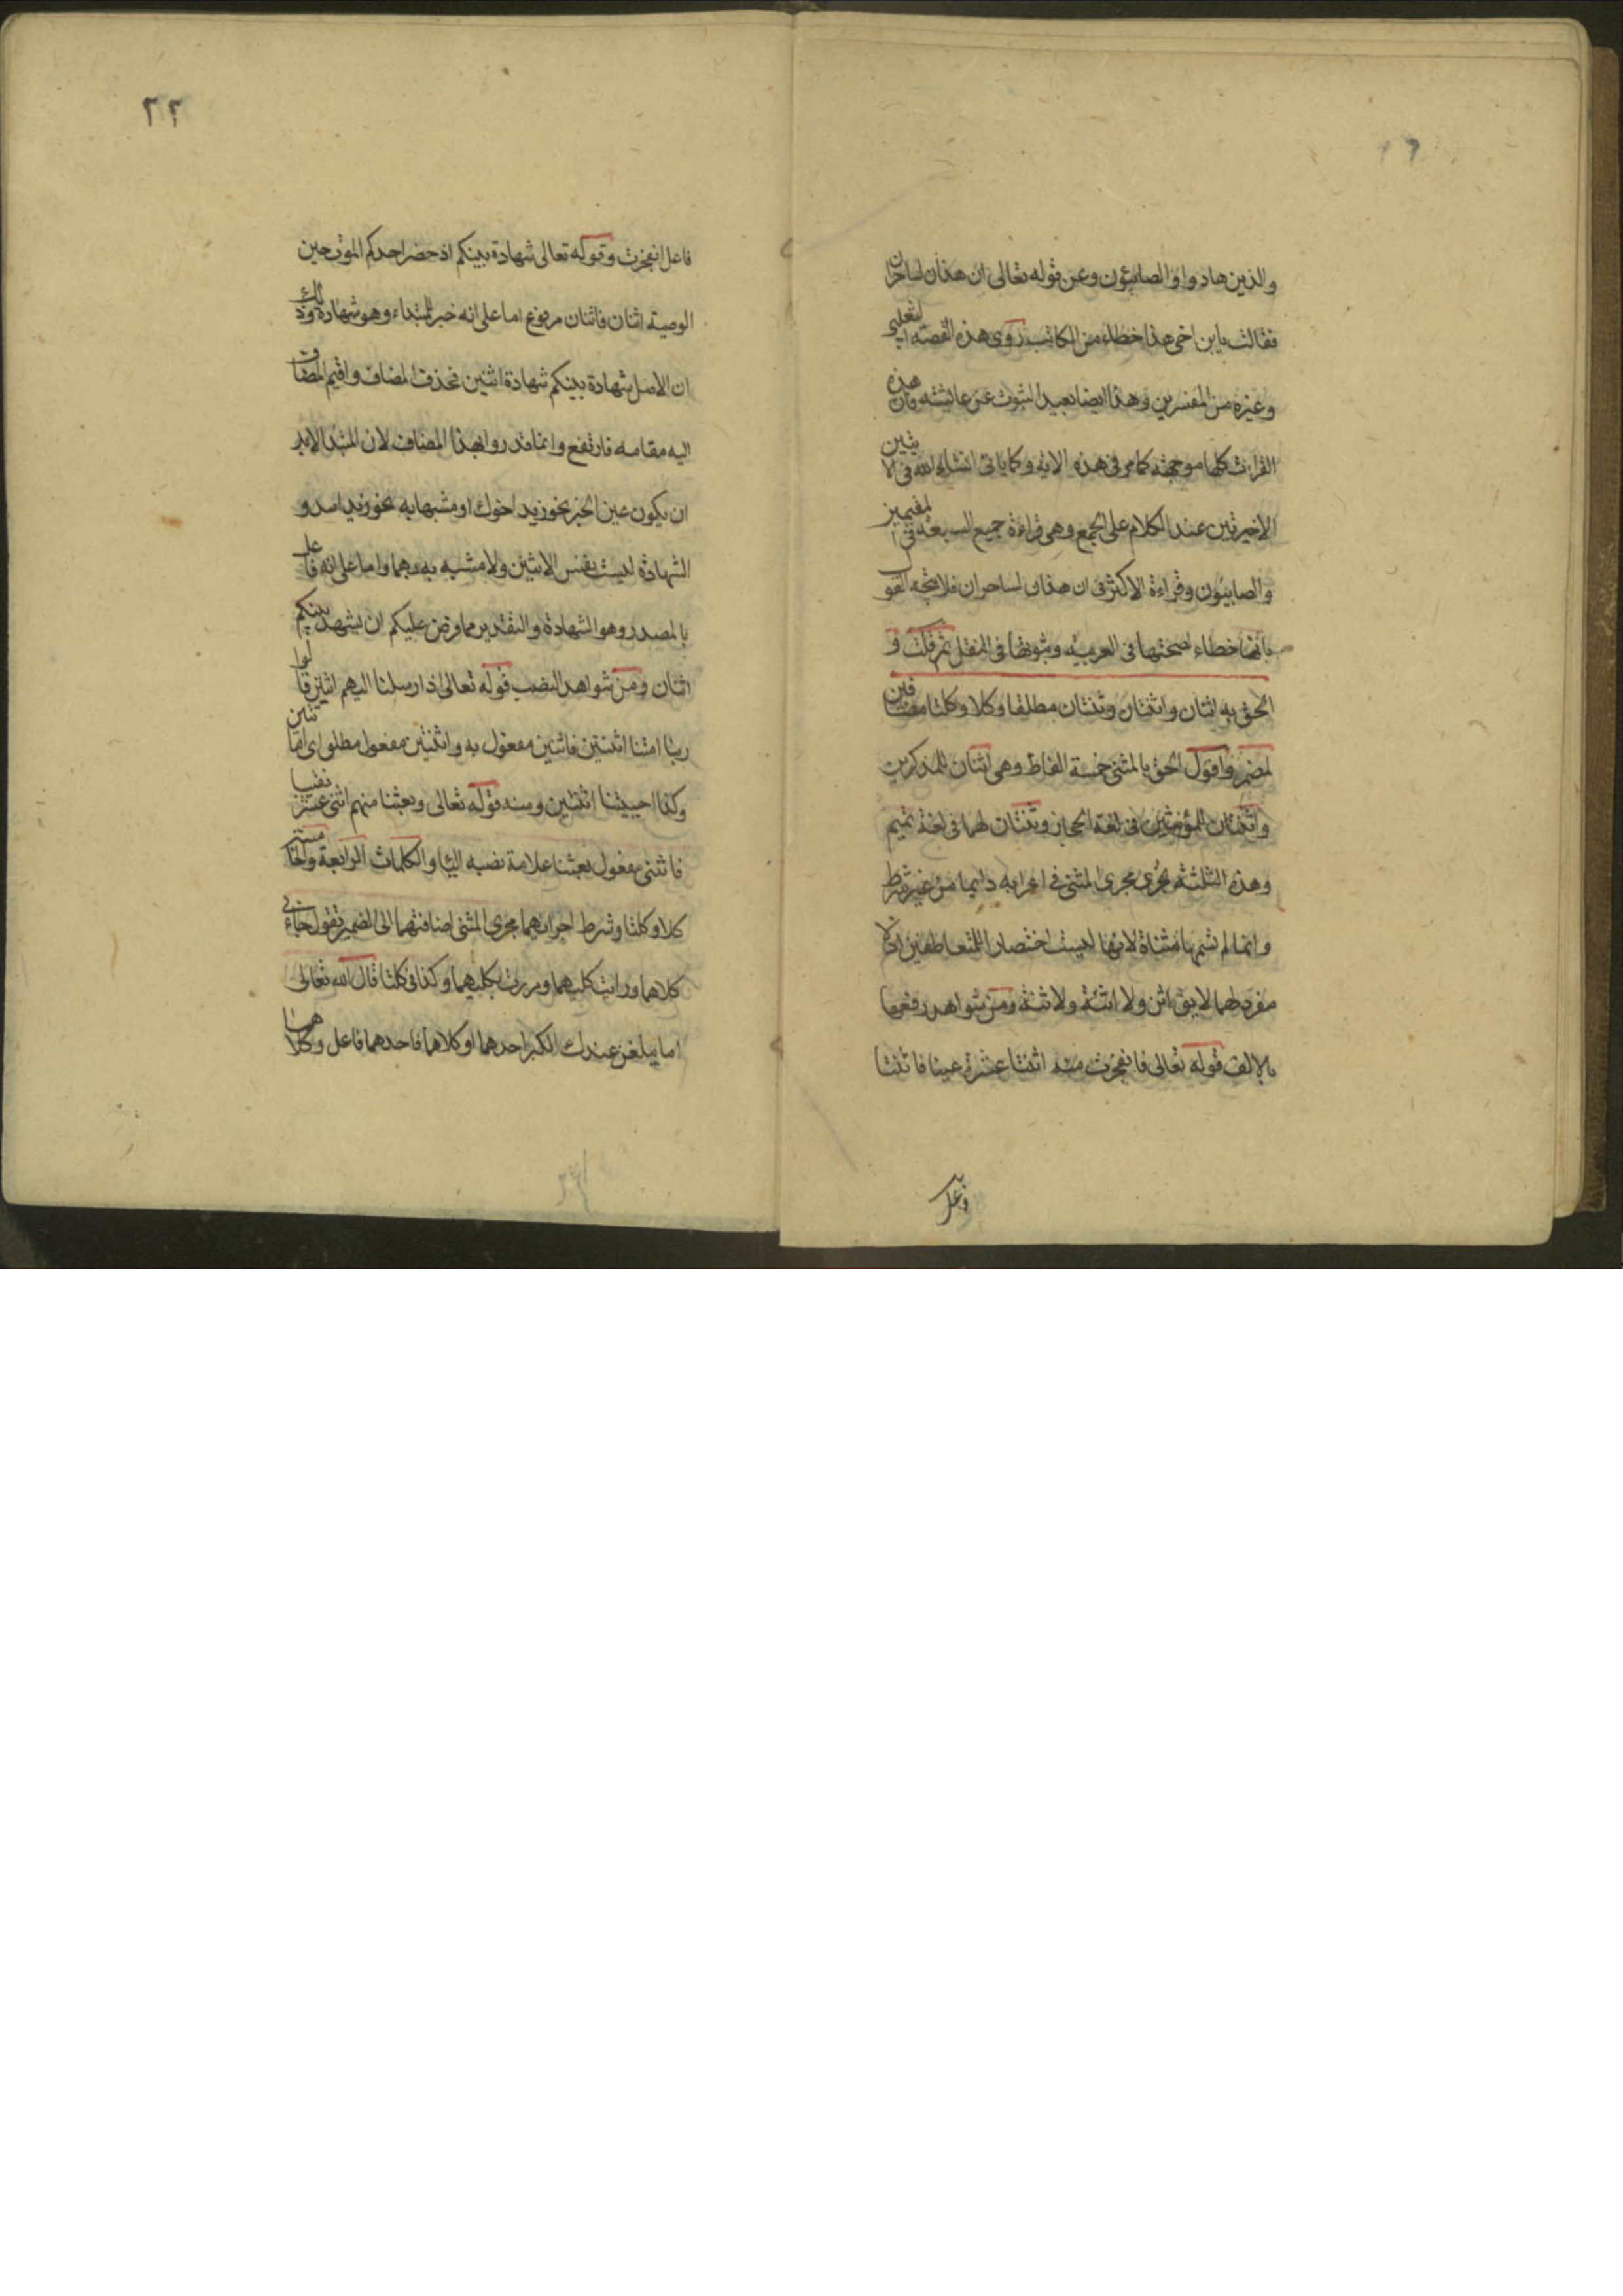 والذين هادوا والصابئون وعن قوله تعالى ان هذان لساحران
فقالت يا بن اخى هذا خطاء من الكاتب روى هذه القصه الثعلبي
وغيره من المفسرين وهذا ايضا بعيد الثبوت عن عائشه فان هذه
القراءت كلها موجهة كما مر فى هذه الايه وكما ياتى انشاء الله فى الا يتين
الاخيرتين عند الكلام على الجمع وهى قراءة جميع السبعة فى المقيمين
والصابئون وقراءة الاكثر فى ان هذان لساحران فلا يتجه القول
بانها خطاء لصحتها فى العربيه وثبوتها فى النقل ثم قلت و
الحق به اثنان واثنتان وثنتان مطلقا وكلا وكلتا مضافين
لمضمر واقول الحق بالمثنى خمسة الفاظ وهى اثنان للمذكرين
واثنتان للمؤنثين فى لغة الحجاز وثنتان لهما فى لغة تميم
وهذه الثلثة تجرى مجرى المثنى فى اعرابه دايما من غير شرط
وانما لم نسمها مثناة لانها ليست اختصارا للمتعاطفين اذ لا
مفرد لهما لا يق اثن ولا اثنة ولا ثنة ومن شواهد رفعها
بالالف قوله تعالى فانفجرت منه اثنتا عشرة عينا فاثنتا
٢٢
فاعل انفجرت وقوله تعالى شهادة بينكم اذ حضر احدكم الموت حين
الوصية اثنان فاثنان مرفوع اما على انه خبر المبتداء وهو شهادة وذلك
ان الاصل شهادة بينكم شهادة اثنين فحذف المضاف واقيم المضاف
اليه مقامه فارتفع وانما قدروا هذا المضاف لان المبتدا لابد
ان يكون عين الخبر نحو زيد اخوك او مشبها به نحو زيد اسد و
الشهادة ليست نفس الاثنين ولا مشبه به بهما واما على انه فاعل
بالمصدر وهو الشهادة والتقدير مما فرض عليكم ان يشهد بينكم
اثنان ومن شواهد النصب قوله تعالى اذ ارسلنا اليهم اثنين قالوا
ربنا امتنا اثنتين فاثنين مفعول به واثنتين مفعول مطلق اى اماتتين
وكذا احييتنا اثنتين ومنه قوله تعالى وبعثنا منهم اثنى عشر نقيبا
فاثنى مفعول بعثنا علامة نصبه الياء والكلمات الرابعة والخامسة
كلا وكلتا وشرط اجرائهما مجرى المثنى اضافتهما الى الضمير تقول جاءنى
كلاهما ورايت كليهما ومررت بكليهما وكذا فى كلتا قال الله تعالى
اما يبلغن عندك الكبر احدهما او كلاهما فاحدهما فاعل وكلاهما